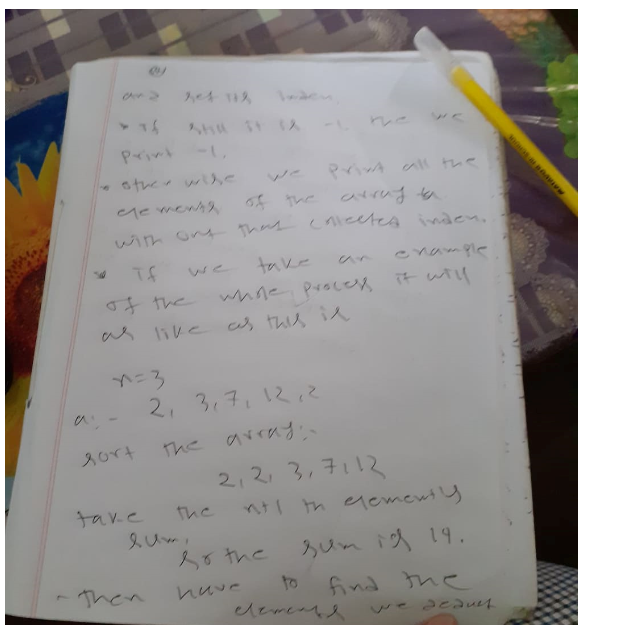 and set its index.
* if still it is -1. the we
print -1.
* other wise we print all the
elements of the array
with out that collected index.
* if we take an example
of the whole process it will
as like as this is
n=3
a:- 2, 3, 7, 12, 2
sort the array:-
2, 2, 3, 7, 12
take the n+1 th elements
sum.
so the sum is 14.
- then have to find the
elements we